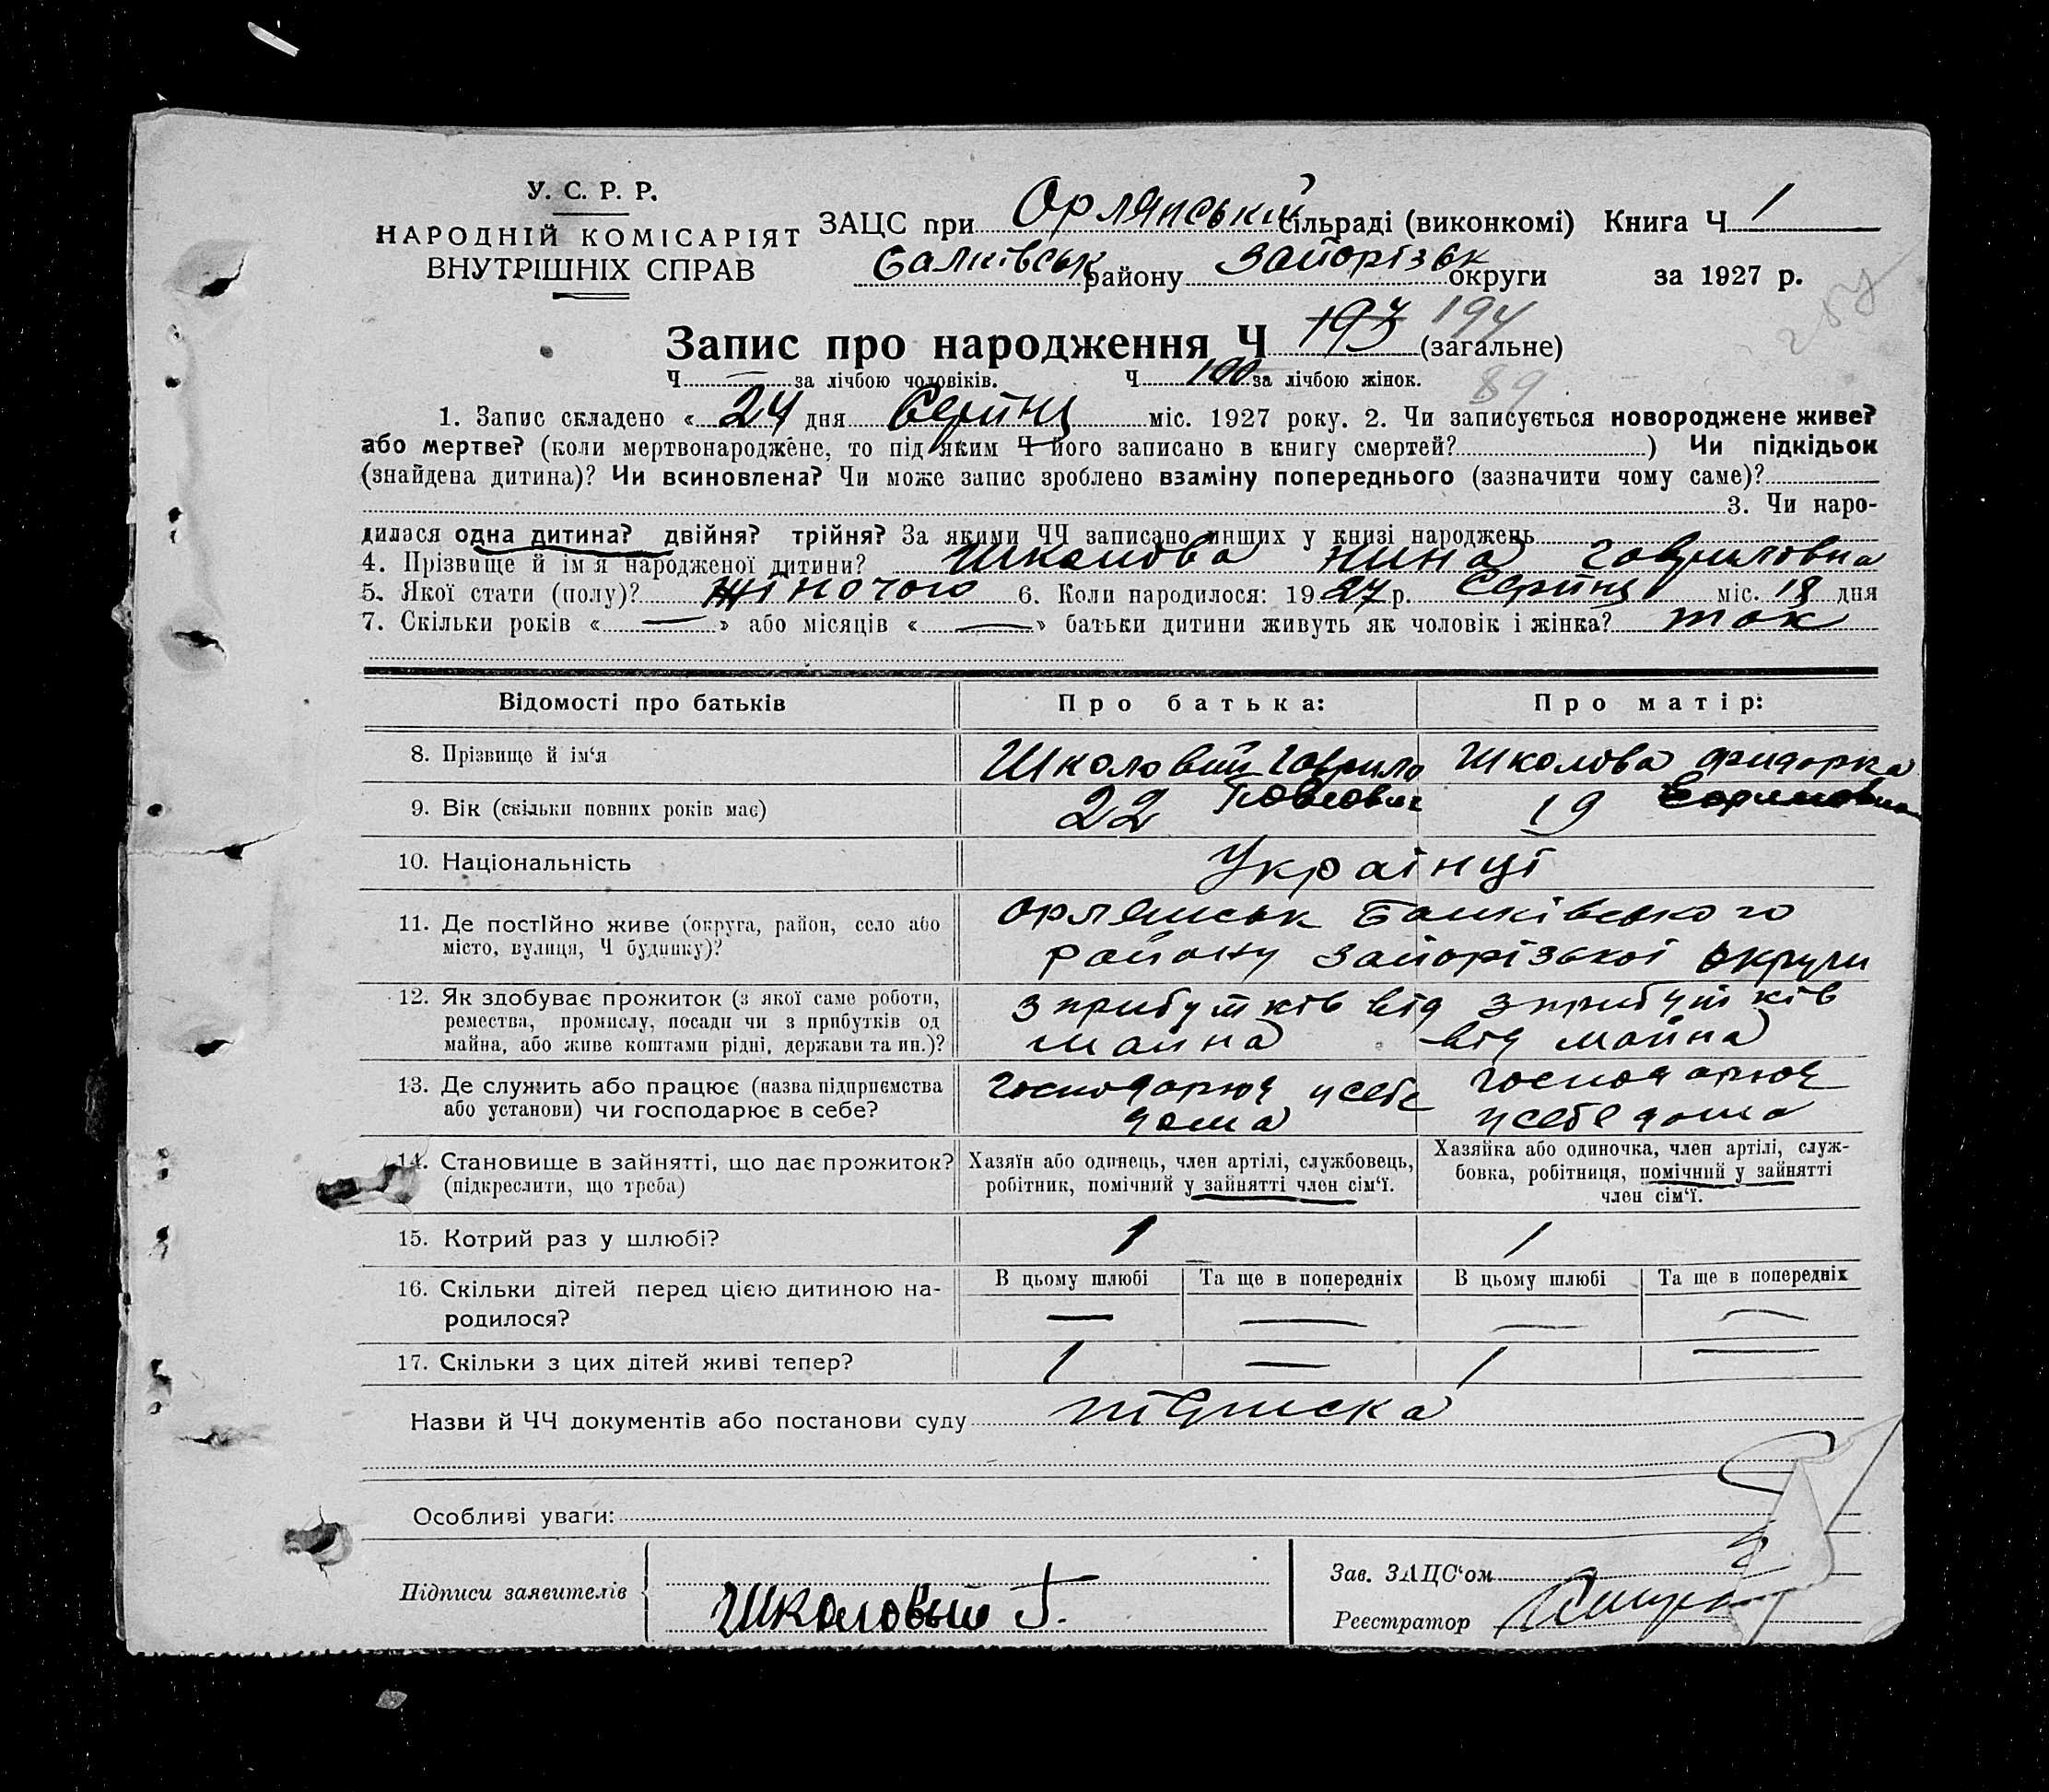 У. С. Р. Р.
НАРОДНІЙ КОМІСАРІЯТ
ВНУТРІШНІХ СПРАВ
ЗАЦС при Орлянській сільраді (виконкомі) Книга Ч 1
Балківськ району Запорізьк округи за 1927 р.
Запис про народження Ч 193 194 (загальне)
Ч — за лічбою чоловіків. Ч 100 за лічбою жінок. 89
1. Запис складено « 24 дня Серпня міс. 1927 року. 2. Чи записується новороджене живе?
або мертве? (коли мертвонароджене, то під яким Ч його записано в книгу смертей? ) Чи підкідьок
(знайдена дитина)? Чи всиновлена? Чи може запис зроблено взаміну попереднього (зазначити чому саме)?
3. Чи наро-
дилася одна дитина? двійня? трійня? За якими ЧЧ записано инших у книзі народжень
4. Прізвище й ім'я народженої дитини? Школова Нина Гавриловна
5. Якої стати (полу)? жіночого 6. Коли народилося: 1927 р. Серпня міс. 18 дня
7. Скільки років « — » або місяців « — » батьки дитини живуть як чоловік і жінка? так
Відомості про батьків Про батька: Про матір:
8. Прізвище й ім'я Школовий Гаврило Школова
9. Вік (скільки повних років має) 22 19
10. Національність Українці
11. Де постійно живе (округа, район, село або
місто, вулиця, Ч будинку)?
Орлянськ Балківського
району Запорізької округи
12. Як здобуває прожиток (з якої саме роботи,
ремества, промислу, посади чи з прибутків од
майна, або живе коштами рідні, держави та ин.)?
з прибутків від майна
з прибутків від майна
13. Де служить або працює (назва підприємства
або установи) чи господарює в себе?
господарює у себе дома
господарює у себе дома
14. Становище в зайнятті, що дає прожиток?
(підкреслити, що треба)
Хазяїн або одинець, член артілі, службовець,
робітник, помічний у зайнятті член сім'ї.
Хазяйка або одиночка, член артілі, служ-
бовка, робітниця, помічний у зайнятті
член сім'ї.
15. Котрий раз у шлюбі? 1 1
16. Скільки дітей перед цією дитиною на-
родилося?
В цьому шлюбі Та ще в попередніх В цьому шлюбі Та ще в попередніх
— — — —
17. Скільки з цих дітей живі тепер? 1 — 1 —
Назви й ЧЧ документів або постанови суду підписка
Особливі уваги:
Підписи заявителів
Школовый Г.
Зав. ЗАЦС'ом
Реєстратор